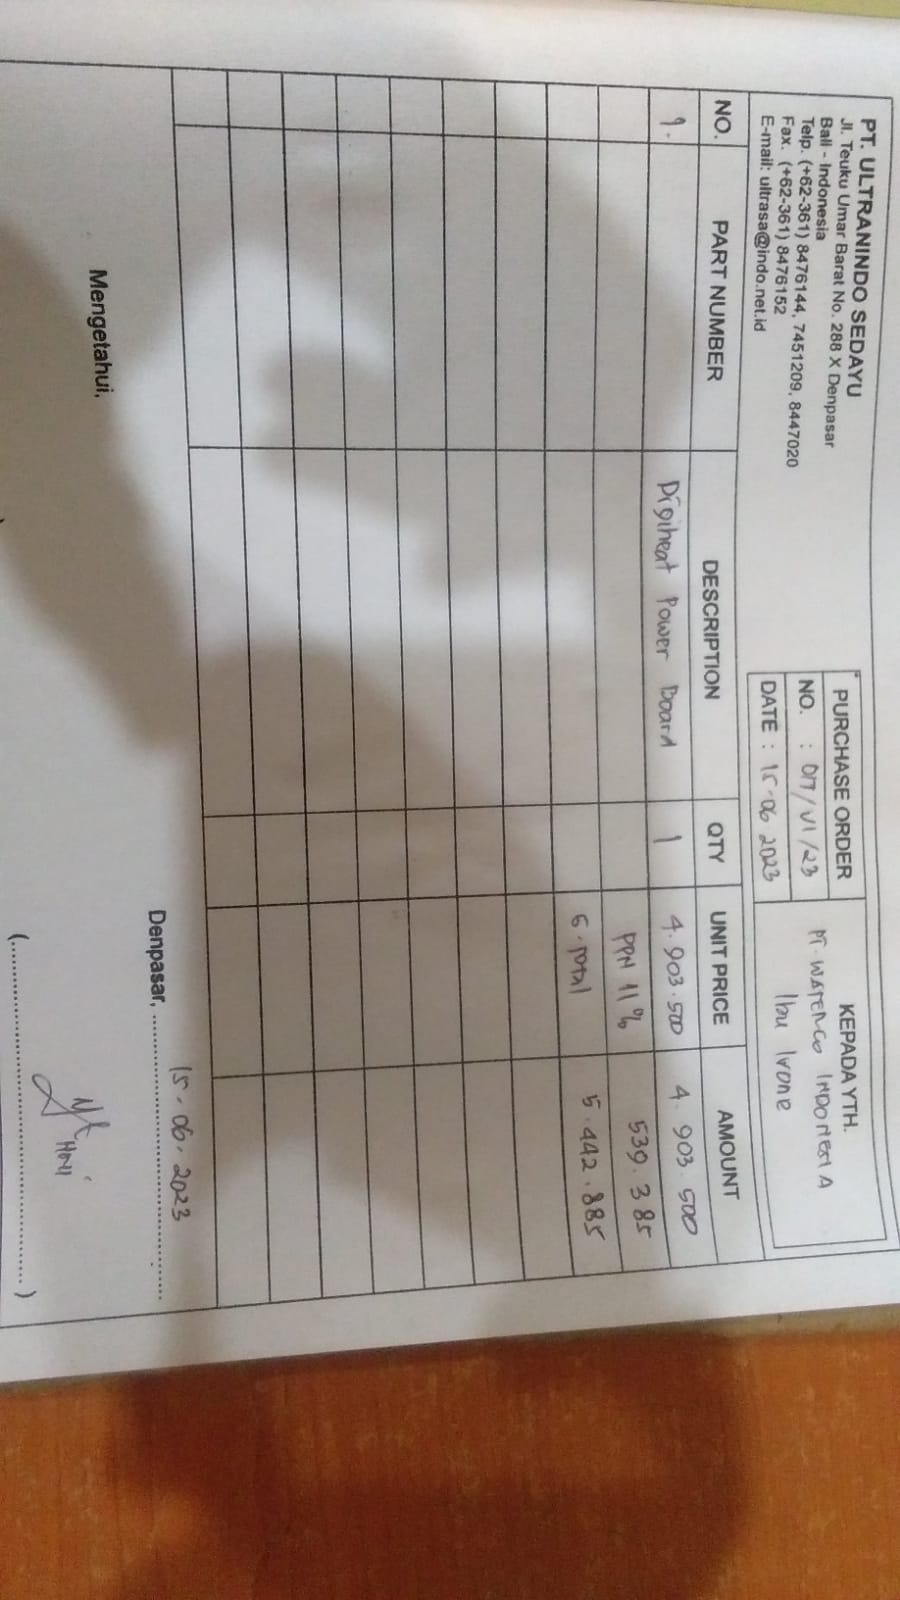 PT. ULTRANINDO SEDAYU
Jl. Teuku Umar Barat No. 288 X Denpasar
Bali - Indonesia
Telp. (+62-361) 8476144, 7451209, 8447020
Fax. (+62-361) 8476152
E-mail: ultrasa@indo.net.id
PURCHASE ORDER
NO. : 017/VI/23
DATE : 15-06 2023
KEPADA YTH.
PT. WATERCO INDONESIA
Ibu Ivone
NO. PART NUMBER DESCRIPTION QTY UNIT PRICE AMOUNT
1. Digiheat Power Board 1 4.903.500 4.903.500
PPN 11% 539.385
G.Total 5.442.885
Mengetahui,
Denpasar, 15-06-2023
(.....................................)